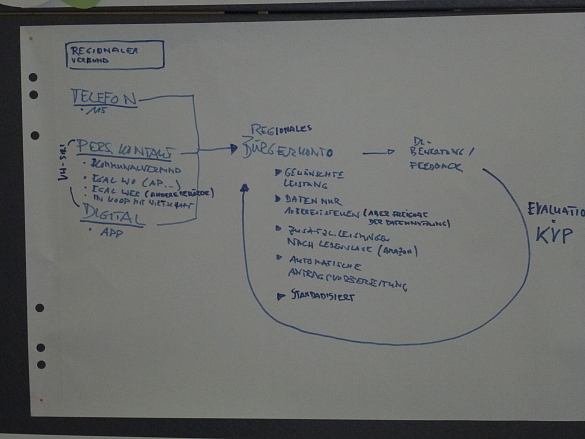 REGIONALER
VERBUND
TELEFON
• 115
PERS. KONTAKT
• KOMMUNALVERBUND
• EGAL WO (AP...)
• EGAL WER (ANDERE BEHÖRDE)
• IN KOOP MIT WIRTSCHAFT
DIGITAL
• APP
REGIONALES
BÜRGERKONTO
▶ GEWÜNSCHTE
LEISTUNG
▶ DATEN NUR
(ABER FREIGABE
DER DATENNUTZUNG)
▶ ZUSÄTZL. LEISTUNGEN
NACH LEBENSLAGE (AMAZON)
▶ AUTOMATISCHE
ANTRAGSVORBEREITUNG
▶ STANDADISIERT
BEWERTUNG /
FEEDBACK
EVALUATIO
KVP